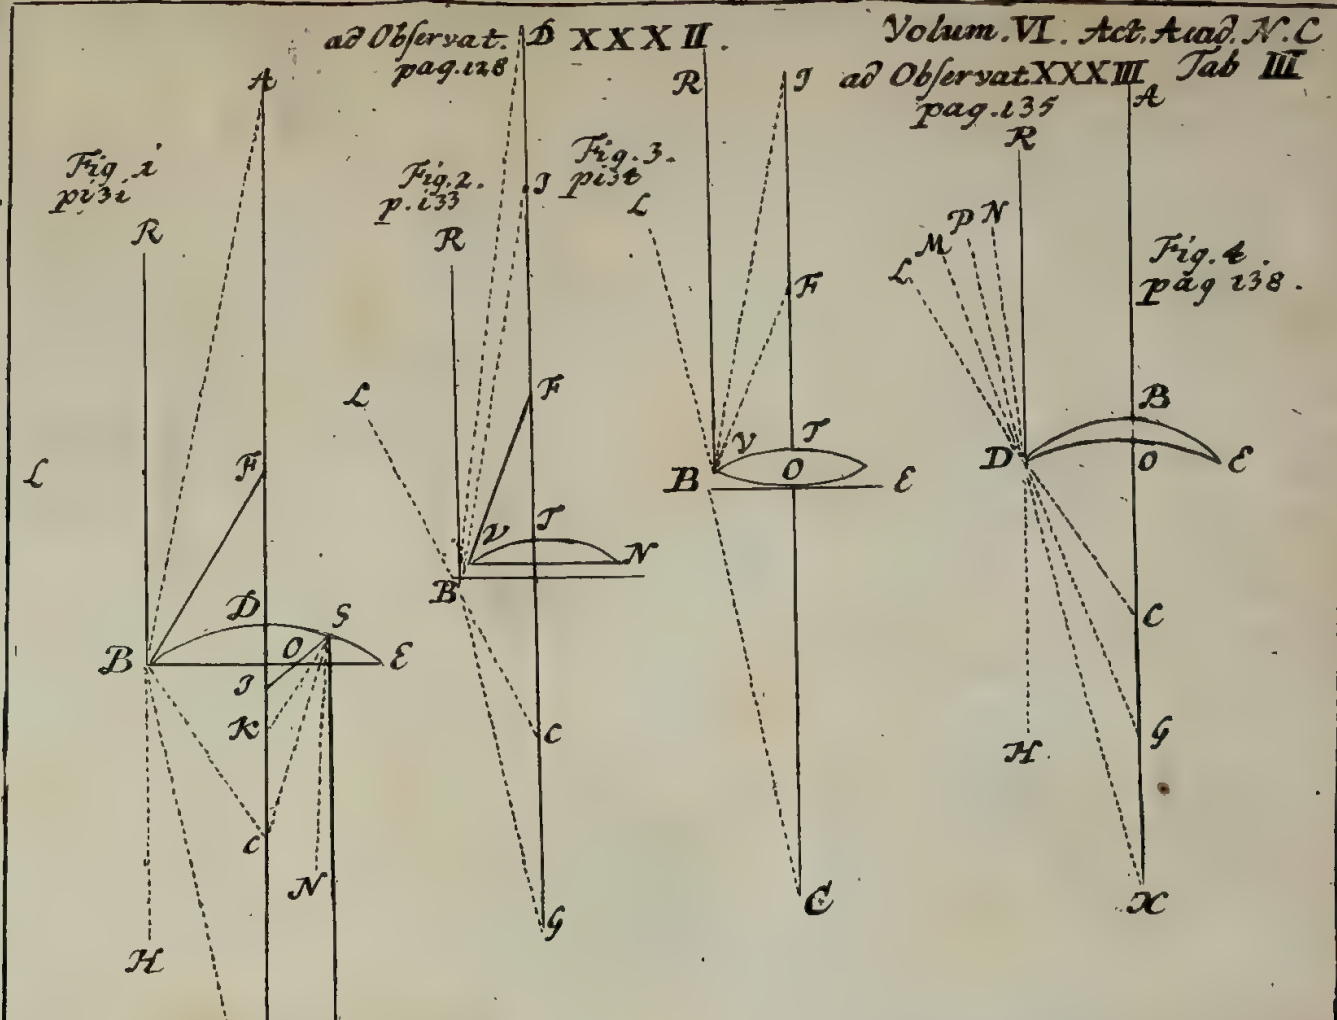 ad Observat. XXXII.
pag. 128
Volum. VI. Act. Acad. N. C
ad Observat XXXIII Tab III
pag. 135
Fig. 1
p 131
A
R
L
F
D
S
B
O
E
I
K
C
N
H
Fig. 2.
p. 133
D
I
R
F
L
V
T
N
B
C
G
Fig. 3.
p 134
R
I
L
F
V
T
B
O
E
C
Fig. 4.
pag 138.
A
R
N
P
M
L
B
D
O
E
C
G
H
X